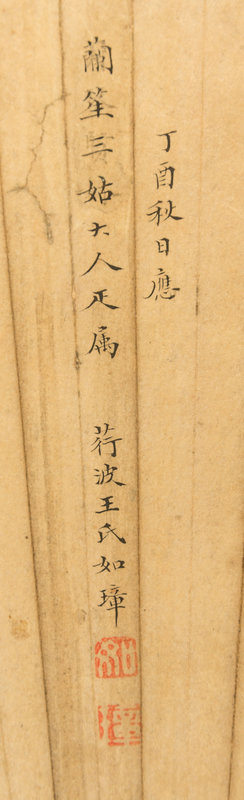 丁酉秋日應
蘭笙三姑大人疋属
荇波王氏如璋
如
璋